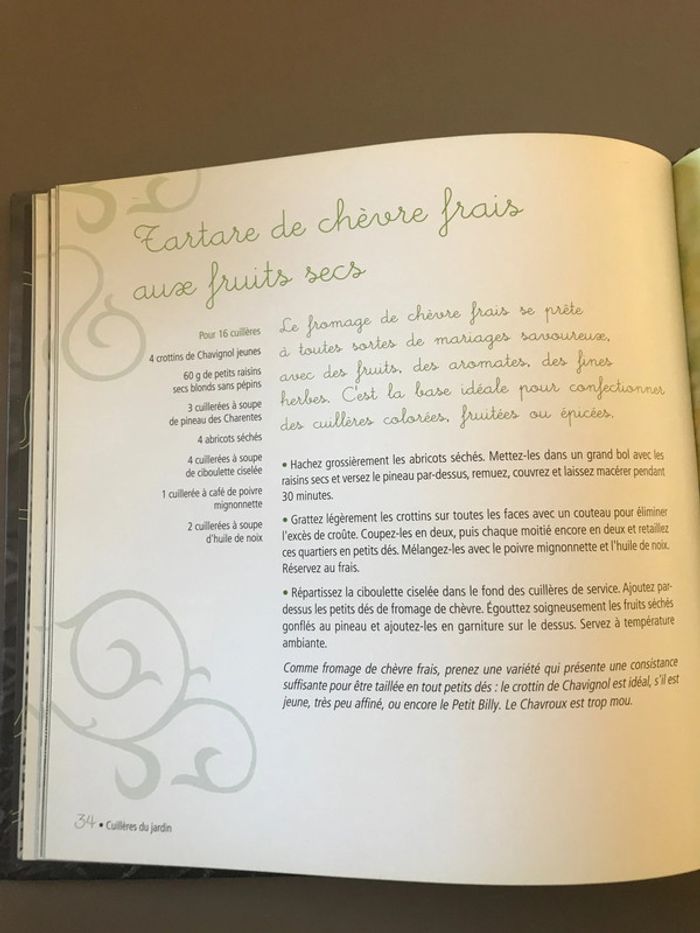 Tartare de chèvre frais
aux fruits secs
Pour 16 cuillères
4 crottins de Chavignol jeunes
60 g de petits raisins
secs blonds sans pépins
3 cuillerées à soupe
de pineau des Charentes
4 abricots séchés
4 cuillerées à soupe
de ciboulette ciselée
1 cuillerée à café de poivre
mignonnette
2 cuillerées à soupe
d'huile de noix
Le fromage de chèvre frais se prête
à toutes sortes de mariages savoureux,
avec des fruits, des aromates, des fines
herbes. C'est la base idéale pour confectionner
des cuillères colorées, fruitées ou épicées.
• Hachez grossièrement les abricots séchés. Mettez-les dans un grand bol avec les
raisins secs et versez le pineau par-dessus, remuez, couvrez et laissez macérer pendant
30 minutes.
• Grattez légèrement les crottins sur toutes les faces avec un couteau pour éliminer
l'excès de croûte. Coupez-les en deux, puis chaque moitié encore en deux et retaillez
ces quartiers en petits dés. Mélangez-les avec le poivre mignonnette et l'huile de noix.
Réservez au frais.
• Répartissez la ciboulette ciselée dans le fond des cuillères de service. Ajoutez par-
dessus les petits dés de fromage de chèvre. Égouttez soigneusement les fruits séchés
gonflés au pineau et ajoutez-les en garniture sur le dessus. Servez à température
ambiante.
Comme fromage de chèvre frais, prenez une variété qui présente une consistance
suffisante pour être taillée en tout petits dés : le crottin de Chavignol est idéal, s'il est
jeune, très peu affiné, ou encore le Petit Billy. Le Chavroux est trop mou.
34 • Cuillères du jardin